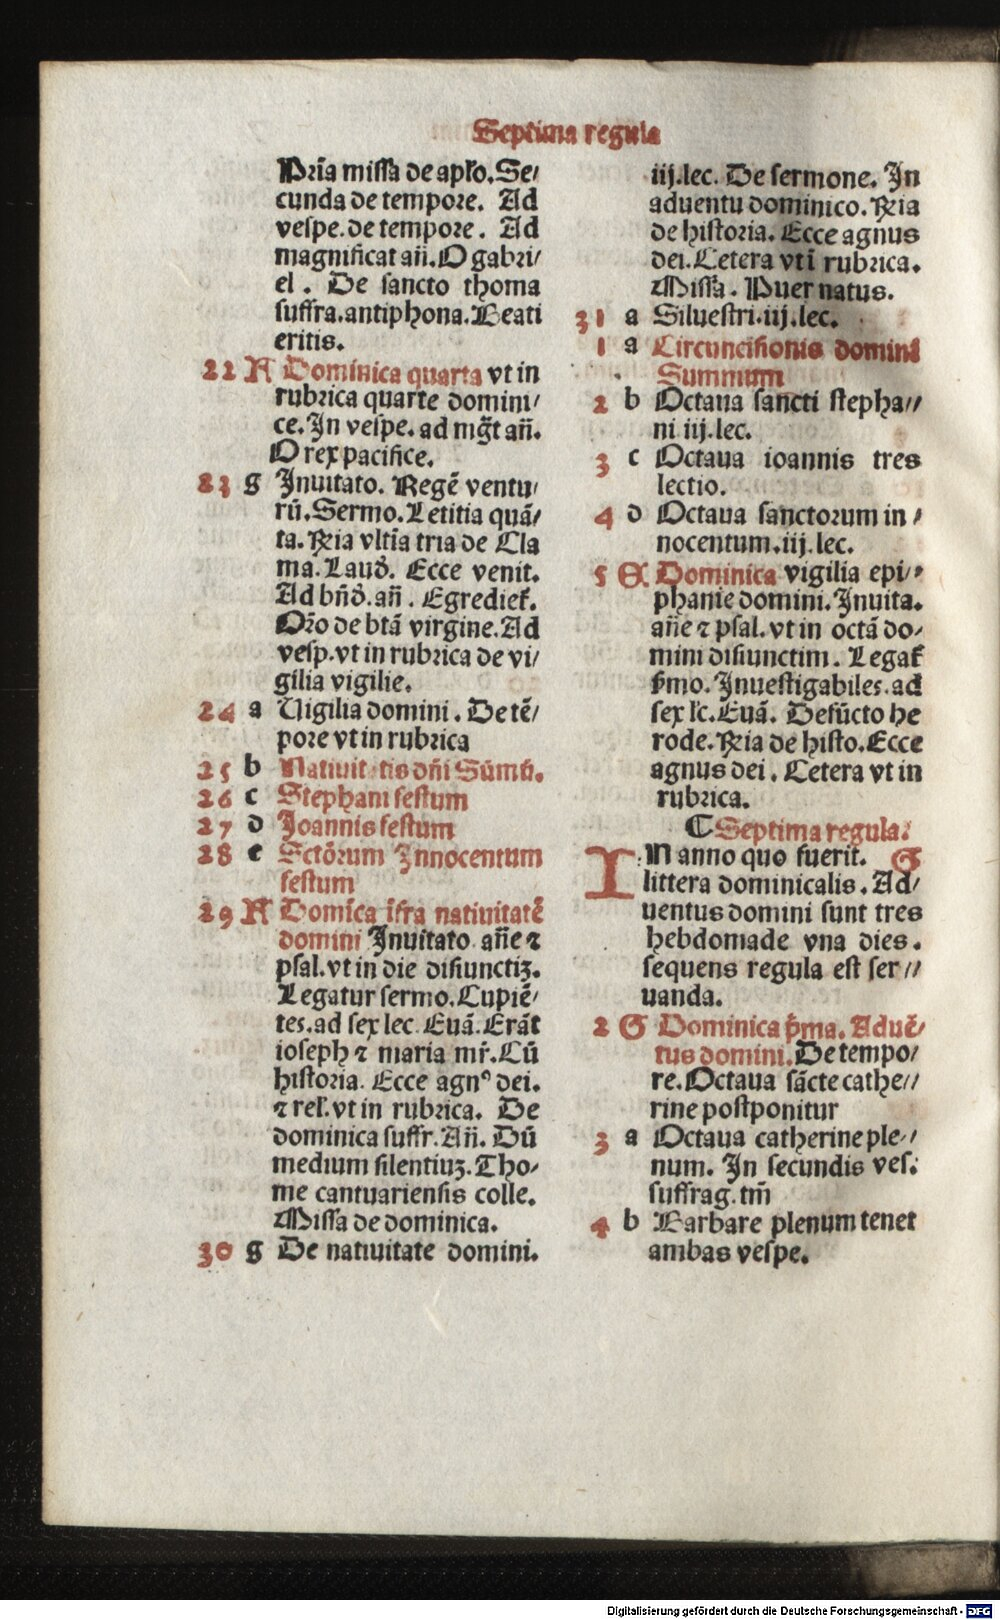 Septima regula
Prĩa missa de apło. Se/
cunda de tempore. Ad
vespe. de tempore. Ad
magnificat añ. O gabri/
el. De sancto thoma
suffra. antiphona. Beati
eritis.
22 A Dominica quarta vt in
rubrica quarte domini/
ce. In vespe. ad mg̃t añ.
O rex pacifice.
23 g Inuitato. Regē ventu/
rū. Sermo. Letitia quā/
ta. R̃ia vltĩa tria de Cla
ma. Laud̉. Ecce venit.
Ad bñd̉. añ. Egrediet̉.
Or̃o de btā virgine. Ad
vesp. vt in rubrica de vi/
gilia vigilie.
24 a Uigilia domini. De tē/
pore vt in rubrica
25 b Natiuitatis dñi Sūmū.
26 c Stephani festum
27 d Joannis festum
28 e Sctōrum Innocentum
festum
29 A Domĩca ĩfra natiuitatē
domini Inuitato. añe ⁊
psal. vt in die disiunctiꝫ.
Legatur sermo. Cupiē/
tes. ad sex lec. Euā. Erāt
ioseph ⁊ maria mr̃. Cū
historia. Ecce agnꝰ dei.
⁊ rel̉. vt in rubrica. De
dominica suffr. Añ. Dū
medium silentiuꝫ. Tho/
me cantuariensis colle.
Missa de dominica.
30 g De natiuitate domini.
iij. lec. De sermone. In
aduentu dominico. R̃ia
de historia. Ecce agnus
dei. Cetera vti ĩ rubrica.
Missa. Puer natus.
31 a Siluestri. iij. lec.
1 a Circuncisionis domini
Summum
2 b Octaua sancti stepha//
ni iij. lec.
3 c Octaua ioannis tres
lectio.
4 d Octaua sanctorum in/
nocentum. iij. lec.
5 E Dominica vigilia epi/
phanie domini. Inuita.
añe ⁊ psal. vt in octā do/
mini disiunctim. Legat̉
s̉mo. Inuestigabiles. ad
sex lc̄. Euā. Defūcto he
rode. R̃ia de histo. Ecce
agnus dei. Cetera vt in
rubrica.
¶ Septima regula.
IN anno quo fuerit. G
littera dominicalis. Ad/
uentus domini sunt tres
hebdomade vna dies.
sequens regula est ser//
uanda.
2 G Dominica p̃ma. Aduē/
tus domini. De tempo/
re. Octaua sācte cathe//
rine postponitur
3 a Octaua catherine ple//
num. In secundis ves.
suffrag. tm̄
4 b Barbare plenum tenet
ambas vespe.
Digitalisierung gefördert durch die Deutsche Forschungsgemeinschaft - DFG